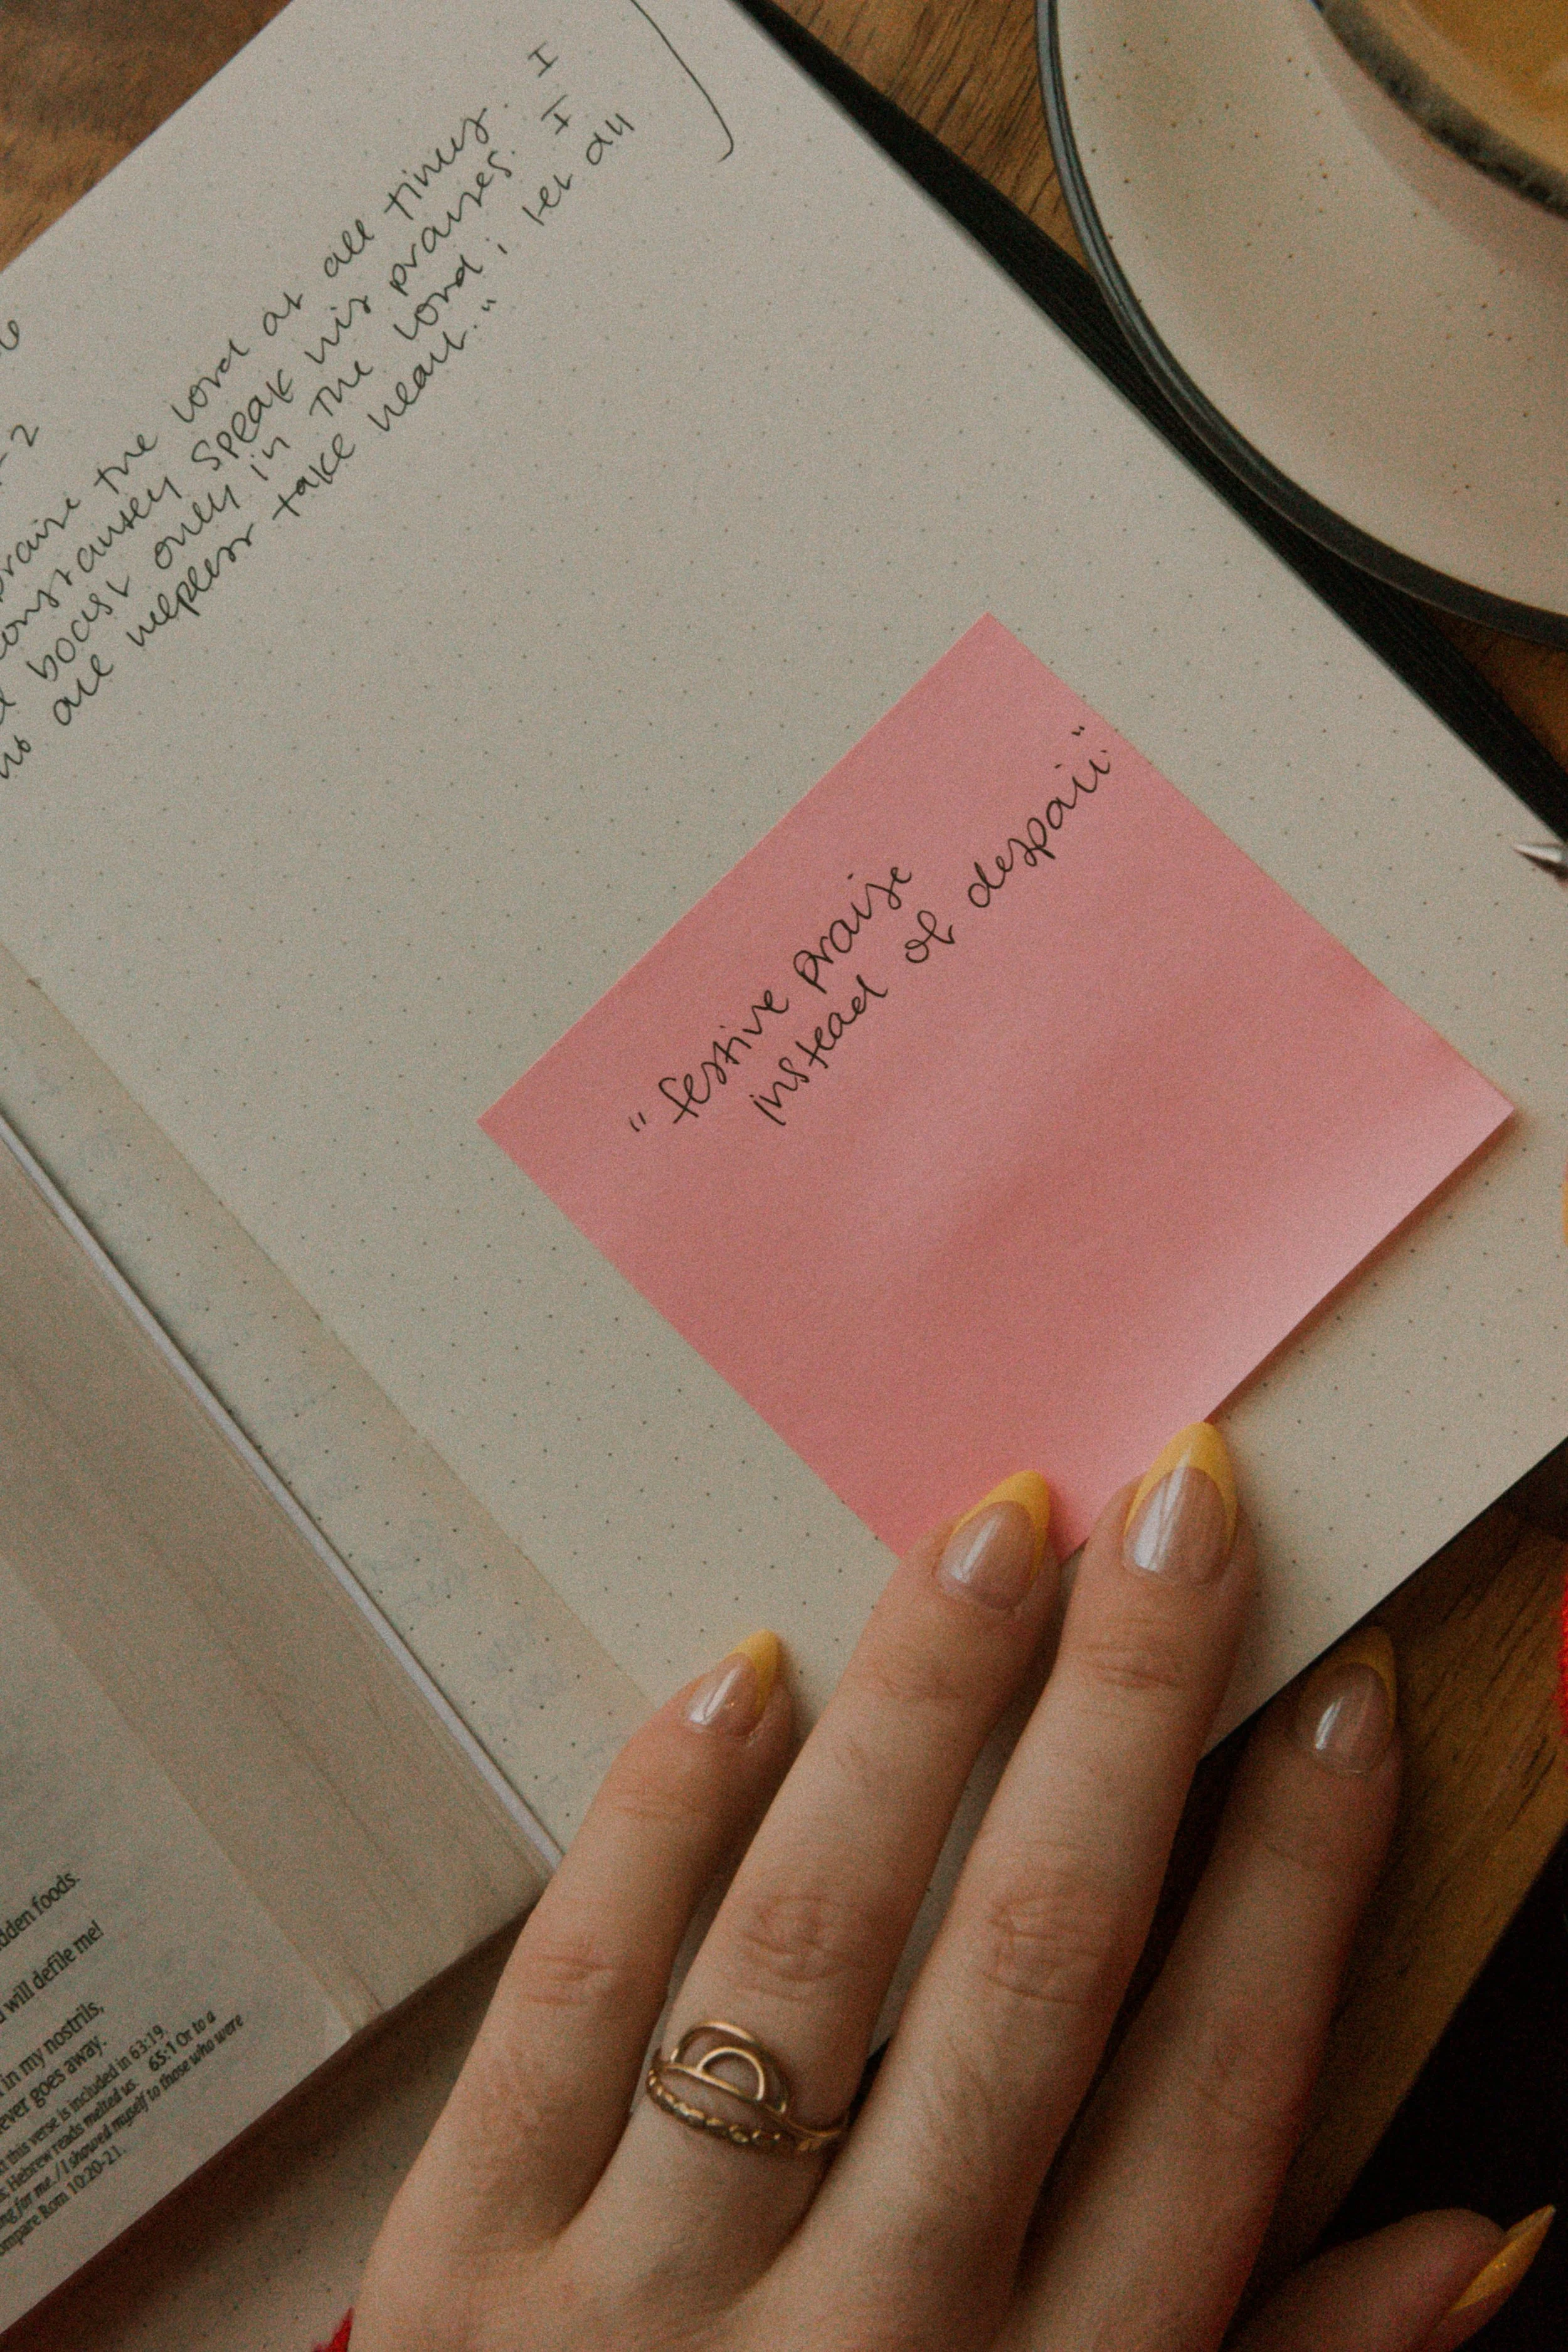 praise the lord at all times. I
constantly speak his praises. I
boast only in the lord; let all
are helpless take heart."
"festive praise
instead of despair."
dden foods.
will defile me!
in my nostrils,
ever goes away.
this verse is included in 63:19. 65:1 Or to a
Hebrew reads melted us.
ng for me. / I showed myself to those who were
ompare Rom 10:20-21.